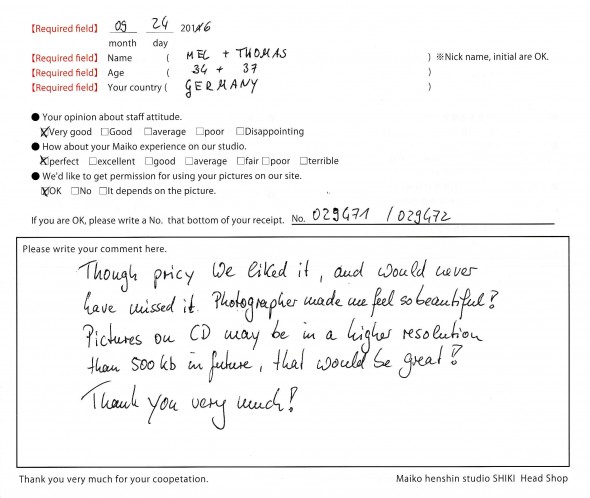 【Required field】 09 24 2016
month day
【Required field】 Name ( MEL + THOMAS ) ※Nick name, initial are OK.
【Required field】 Age ( 34 + 37 )
【Required field】 Your country ( GERMANY )
● Your opinion about staff attitude.
☒Very good □Good □average □poor □Disappointing
● How about your Maiko experience on our studio.
☒perfect □excellent □good □average □fair □poor □terrible
● We'd like to get permission for using your pictures on our site.
☒OK □No □It depends on the picture.
If you are OK, please write a No. that bottom of your receipt. No. 029471 / 029472
Please write your comment here.
Though pricy we liked it, and would never
have missed it. Photographer made me feel so beautiful!
Pictures on CD may be in a higher resolution
than 500kb in future, that would be great!
Thank you very much!
Thank you very much for your coopetation. Maiko henshin studio SHIKI Head Shop